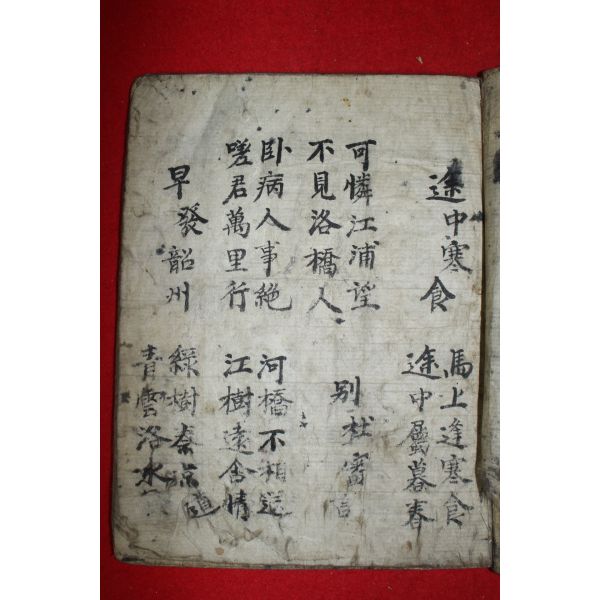 途中寒食
馬上逢寒食
途中屬暮春
可憐江浦望
不見洛橋人
别杜審言
卧病人事絶
嗟君萬里行
河橋不相送
江樹遠含情
早發韶州
綠樹秦京道
青雲洛水